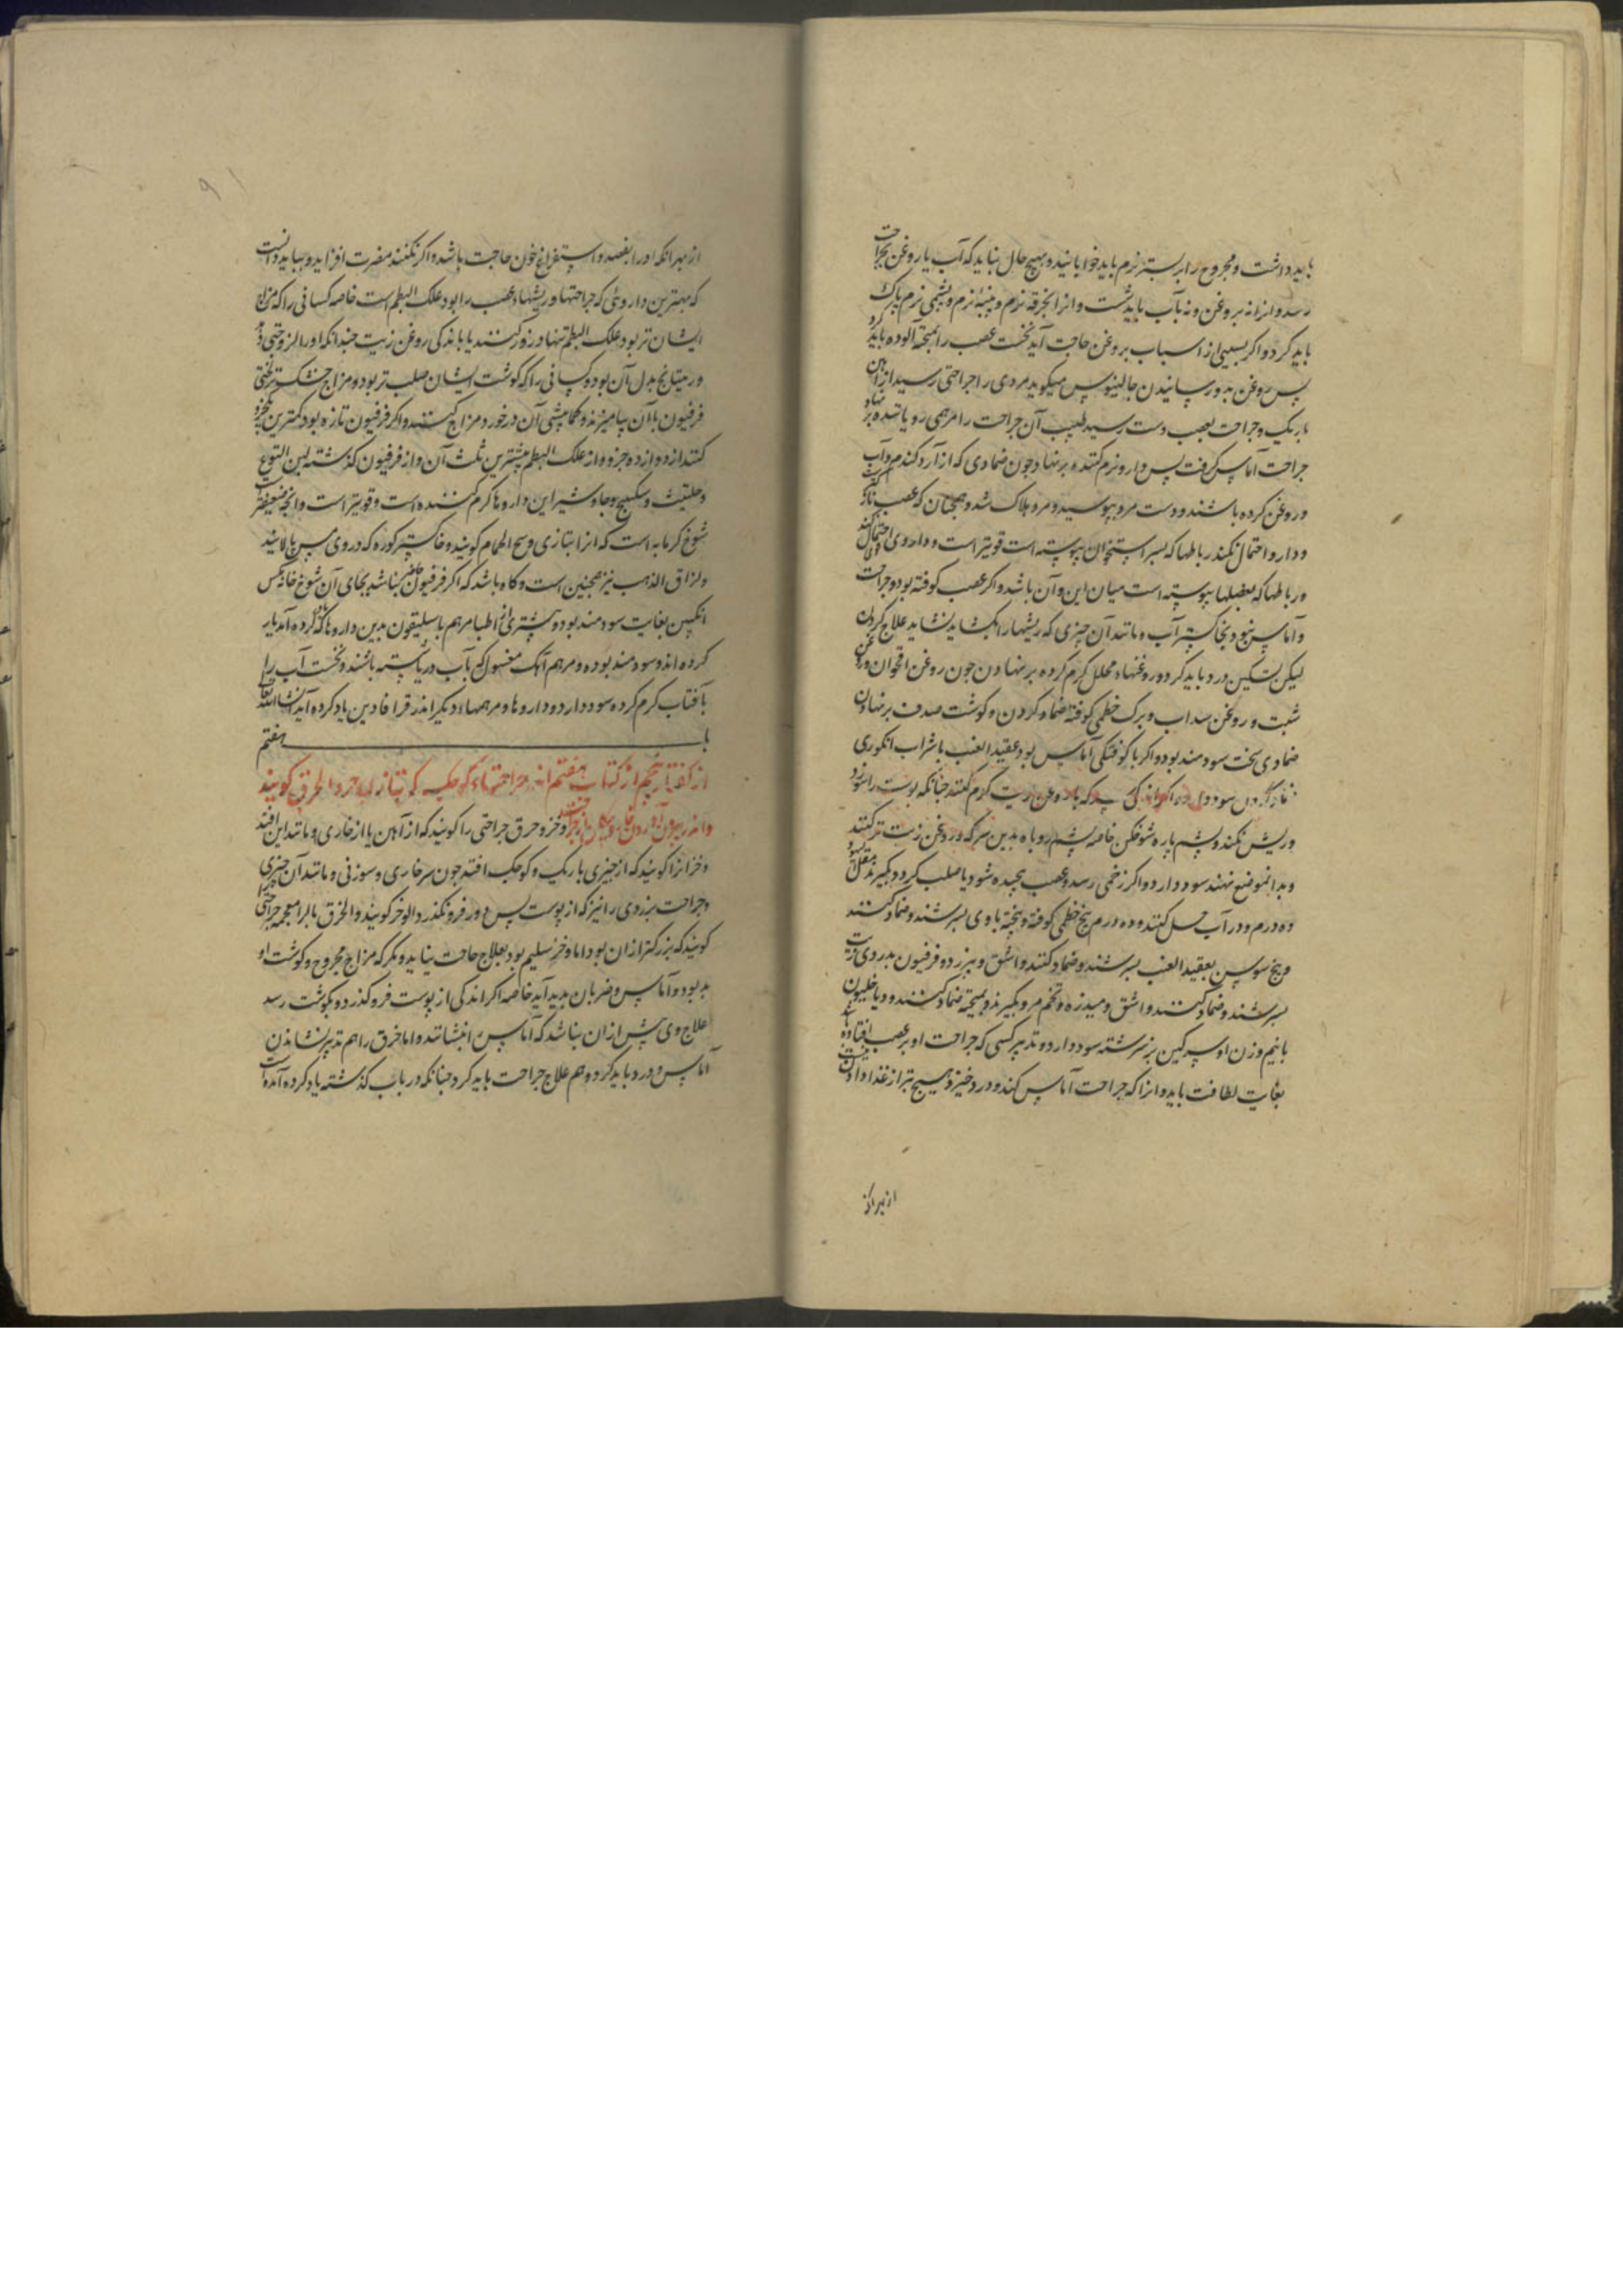 باید داشت و مجروح را بر بستر نرم باید خوابانید و بهیچ حال نباید که آب یا روغن بجراحت
رسد و انرا نه بروغن و نه بآب باید شست و انرا بخرقه نرم و پنبه نرم و پشمی نرم پاک
باید کرد و اکر بسببی از اسباب بروغن حاجت آید نخست عصب را بمیخته آلوده باید کرد
پس روغن بدو رسانیدن جالینوس میکوید مردی را جراحتی رسید از آهن
باریک و جراحت بعصب دست رسید طبیب آن جراحت را مرهمی رویاننده بر نهاد
جراحت آماس کرفت پس دارو نرم کننده بر نهاد جون ضمادی که از آرد کندم و آب
و روغن کرده باشند و دست مرد بپوسید و مرد هلاک شد و همجنان که عصب
و دارو احتمال نکند رباطها که بسر استخوان پیوسته است قویتر است و داروی احتمال کند
و رباطها که بعضلها پیوسته است میان این و آن باشد و اکر عصب کوفته بود و جراحت
و آماس نبود بخاکستر آب و مانند آن چیزی که ریشها را بکشاید نشاید علاج کردن
لیکن تسکین درد باید کرد و روغنهاء محلل کرم کرده بر نهادن جون روغن اقحوان و روغن
شبت و روغن سداب و برک خطمی کوفته ضماد کردن و کوشت صدف بر نهادن
ضمادی سخت سودمند بود و اکر با کوفتکی آماس بود عقید العنب با شراب انکوری
سود دارد و اکر اندکی سرکه با روغن زیت کرم کنند جنانکه پوست را نسوزد
و ریش نکند و پشم پاره شوخکن خاصه پشم روباه بدین سرکه و روغن زیت تر کنند
و بدانموضع نهند سود دارد و اکر زخمی رسد و عصب بجیده شود یا صلب کردد بکیرند مقل
ده درم و در آب حل کنند و ده درم بیخ خطمی کوفته و بیخته با وی بسرشند و ضماد کنند
و بیخ سوسن بعقید العنب بسرشند و ضماد کنند و اشق و بیرزد و فرفیون بدردی زیت
بسرشند و ضماد کنند و اشق و میدزه و تخم مرو بکیرند و بمیخته ضماد کنند و دیاخلیون
با نیم وزن او سرکین بز سرشته سود دارد و تدبیر کسی که جراحت او بر عصب افتاده
بغایت لطافت باید و انرا که جراحت آماس کند و درد خیزد هیچ بتر از غذا دادن
از بهر انک
از بهر انکه او را بفصد و استفراغ خون حاجت باشد و اکر نکنند مضرت افزاید و بباید دانست
که بهترین داروئی که جراحتها و ریشهاء عصب را بود علک البطم است خاصه کسانی را که مزاج
ایشان تر بود علک البطم تنها درو کنند یا باندکی روغن زیت جندانکه او را لزوجتی
و ریتیانج بدل آن بود و کسانی را که کوشت ایشان صلب تر بود و مزاج خشکتر لختی
فرفیون با آن بیامیزند و کمابیشی آن در خور مزاج کنند و اکر فرفیون تازه بود کمترین یکجزو
کنند از دوازده جزو و از علک البطم بیشترین ثلث آن و از فرفیون کذشته لبن التوع
و حلتیت و سکبینج و جاوشیر این داروها کرم کننده است و قویتر است و انجه ضعیفتر است
شوخ کرمابه است که انرا بتازی وسخ الحمام کویند و خاکستر کوره که در وی مس پالایند
و لزاق الذهب نیز همجنین است و کاه باشد که اکر فرفیون نباشد بجای آن شوخ خانه مکس
انکبین بغایت سودمند بود و بیشتری از اطبا مرهم باسلیقون بدین داروها که یاد کرده آمد یار
کرده اند و سودمند بوده و مرهم آهک مغسول که بآب دریا شسته باشند و نخست آب را
بآفتاب کرم کرده سود دارد و داروها و مرهمهاء دیکر اندر قرافادین یاد کرده آید انشاء الله تعالی
باب هفتم
از کفتار پنجم از کتاب هفتم اندر جراحتهاء کوچک که بتازی الوخز و الخرق کویند
و اندر بیرون آوردن خار و پیکان از جراحت وخز و خرق جراحتی را کویند که از آهن یا از خاری و مانند این افتد
وخز انرا کویند که از چیزی باریک و کوجک افتد جون سر خاری و سوزنی و مانند آن چیزی
و جراحت بزردی را نیز که از پوست پس دور فرو نکذرد الوخز کویند و الخرق بالرا معجمه جراحتی
کویند که بزرکتر از ان بود اما وخز سلیم بود بعلاج حاجت نیاید و مکر که مزاج مجروح و کوشت او
بد بود و آماس و ضربان پدید آید خاصه اکر اندکی از پوست فرو کذرد و بکوشت رسد
علاج وی بیش از ان نباشد که آماس را بنشانند و اما خرق را هم تدبیر نشاندن
آماس و درد باید کرد و هم علاج جراحت باید کرد جنانکه در باب کذشته یاد کرده آمده است